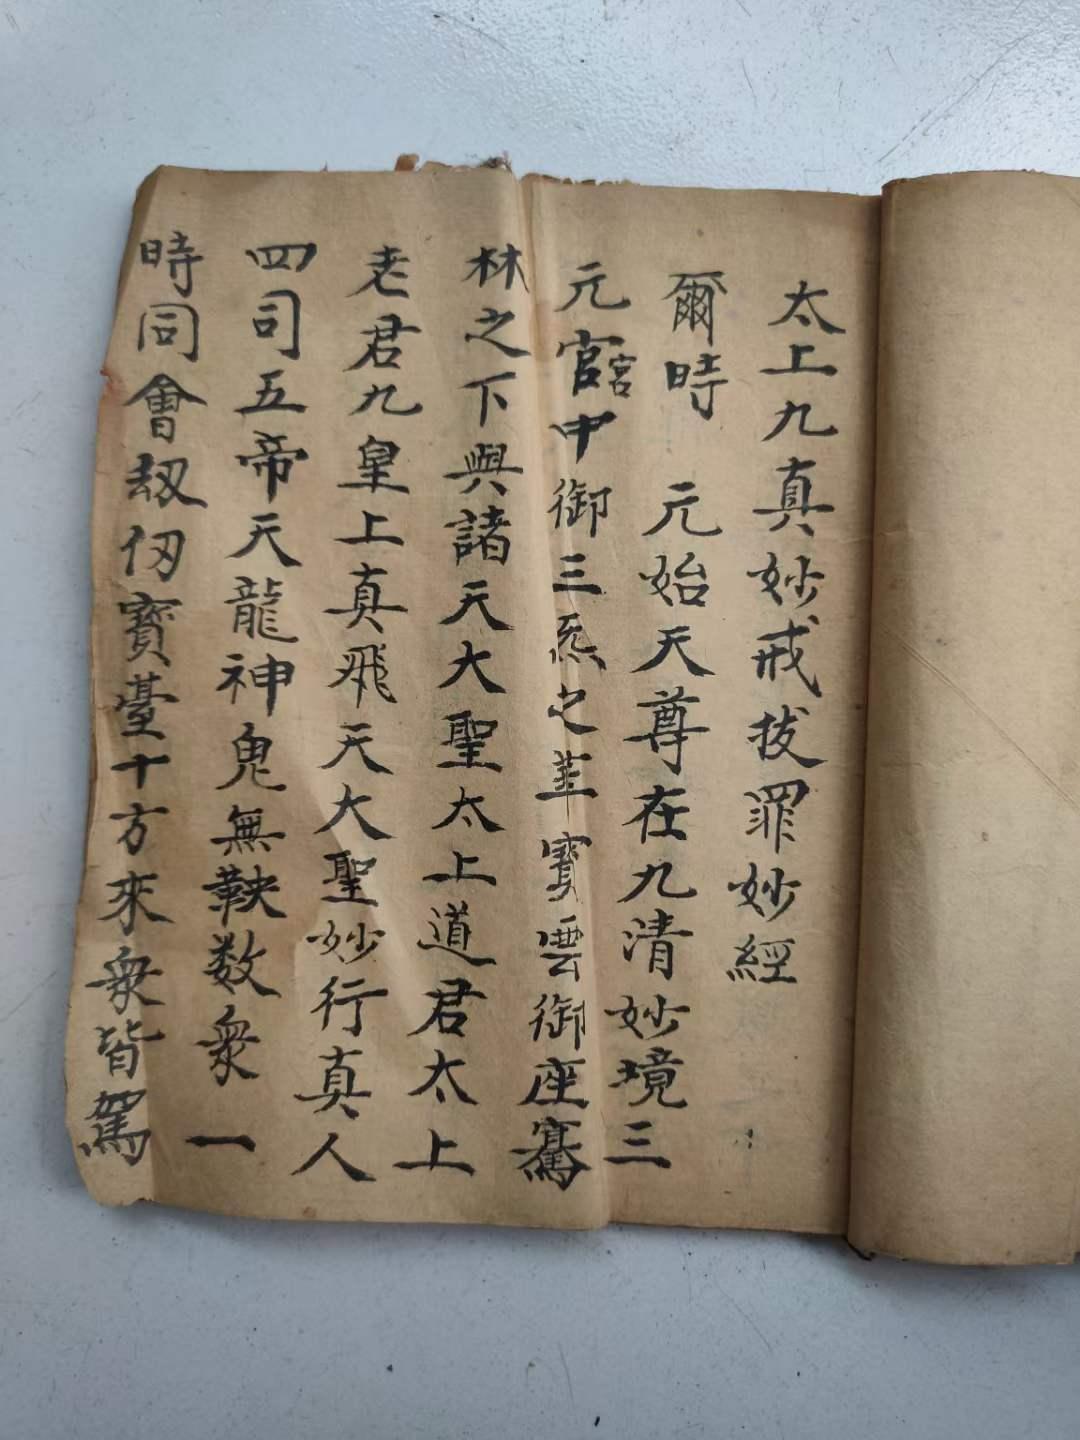 太上九真妙戒拔罪妙經
爾時 元始天尊在九清妙境三
元官宮中御三炁之華寶雲御座騫
林之下與諸天大聖太上道君太上
老君九皇上真飛天大聖妙行真人
四司五帝天龍神鬼無鞅数衆一
時同會刼仞寶臺十方來衆皆駕